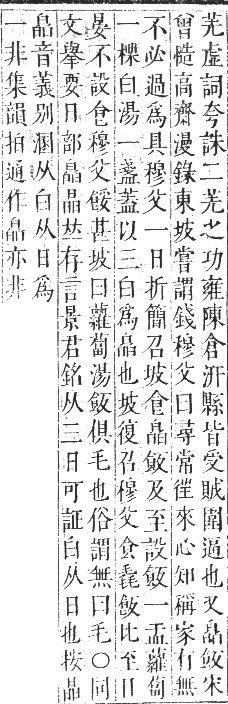 羌虛詞夸誅二羌之功雍陳倉汧縣皆受賊圍逼也又皛飯宋
曾慥高齋漫錄東坡嘗謂錢穆父曰尋常往來心知稱家有無
不必過爲具穆父一日折簡召坡食皛飯及至設飯一盂蘿蔔
一楪白湯一盞蓋以三白爲皛也坡復召穆父食毳飯比至日
晏不設食穆父餒甚坡曰蘿蔔湯飯俱毛也俗謂無曰毛〇同
文舉要日部皛晶𠀤存言景君銘从三日可証白从日也按皛
皛音義别溷从白从日爲
一非集韻拍通作皛亦非